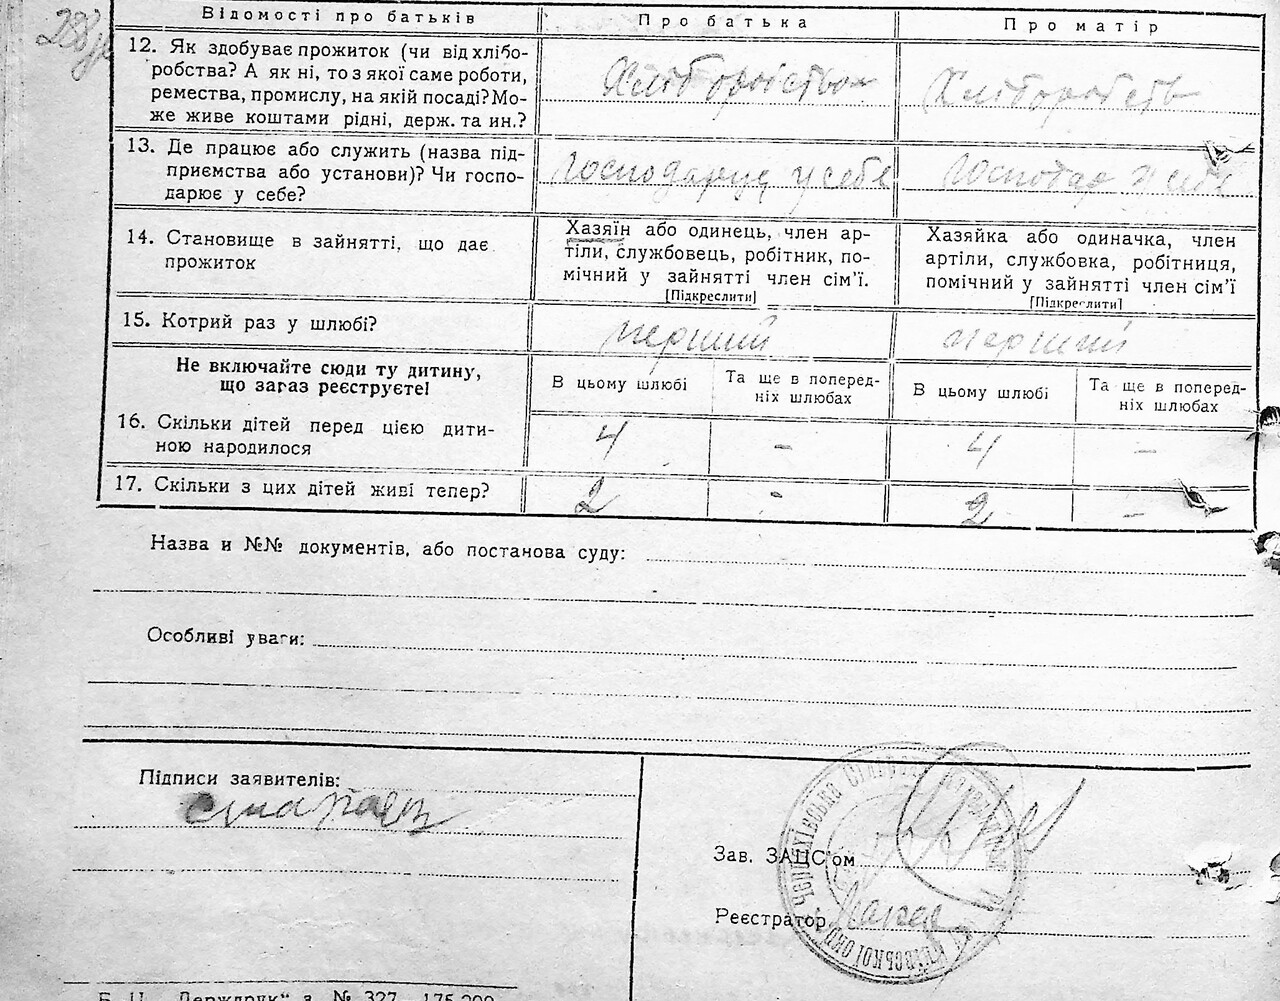 288
Відомості про батьків Про батька Про матір
12. Як здобуває прожиток (чи від хлібо-
робства? А як ні, то з якої саме роботи,
ремества, промислу, на якій посаді? Мо-
же живе коштами рідні, держ. та ин.?
Хліборобством Хлібороб
13. Де працює або служить (назва під-
приємства або установи)? Чи госпо-
дарює у себе?
Господарює у себе Господар у себе
14. Становище в зайнятті, що дає
прожиток
Хазяїн або одинець, член ар-
тіли, службовець, робітник, по-
мічний у зайнятті член сім'ї.
[Підкреслити]
Хазяйка або одиначка, член
артіли, службовка, робітниця,
помічний у зайнятті член сім'ї
[Підкреслити]
15. Котрий раз у шлюбі? перший перший
Не включайте сюди ту дитину,
що зараз реєструєте!
В цьому шлюбі Та ще в поперед-
ніх шлюбах В цьому шлюбі Та ще в поперед-
ніх шлюбах
16. Скільки дітей перед цією дити-
ною народилося 4 - 4 -
17. Скільки з цих дітей живі тепер? 2 - 2 -
Назва и №№ документів, або постанова суду:
Особливі уваги:
Підписи заявителів:
Зав. ЗАЦС'ом
Реєстратор
Б. Ц. „Держдрук" з. № 327 175.200